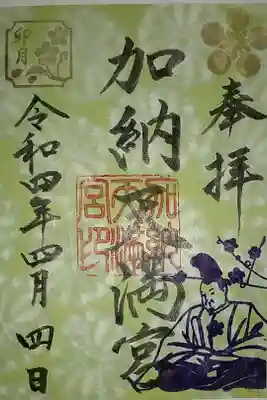 奉拝
加納天満宮
令和四年四月四日
卯月